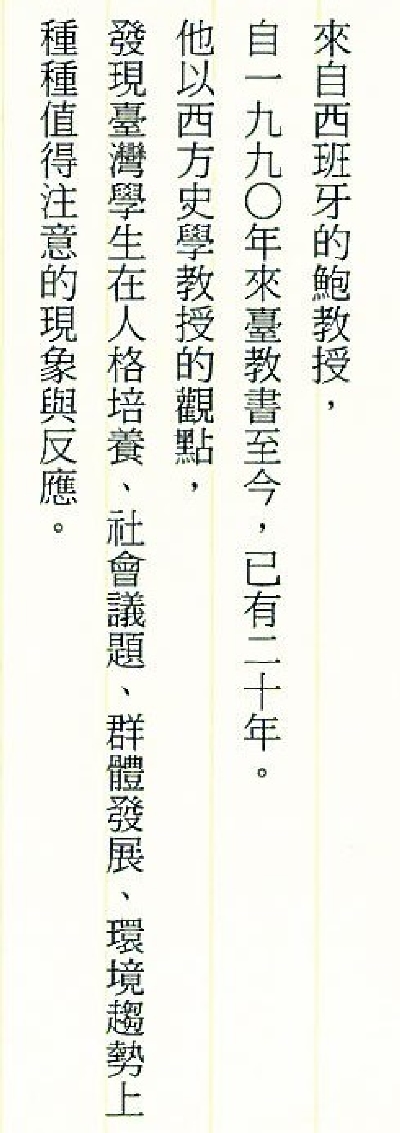 來自西班牙的鮑教授，
自一九九〇年來臺教書至今，已有二十年。
他以西方史學教授的觀點，
發現臺灣學生在人格培養、社會議題、群體發展、環境趨勢上
種種值得注意的現象與反應。